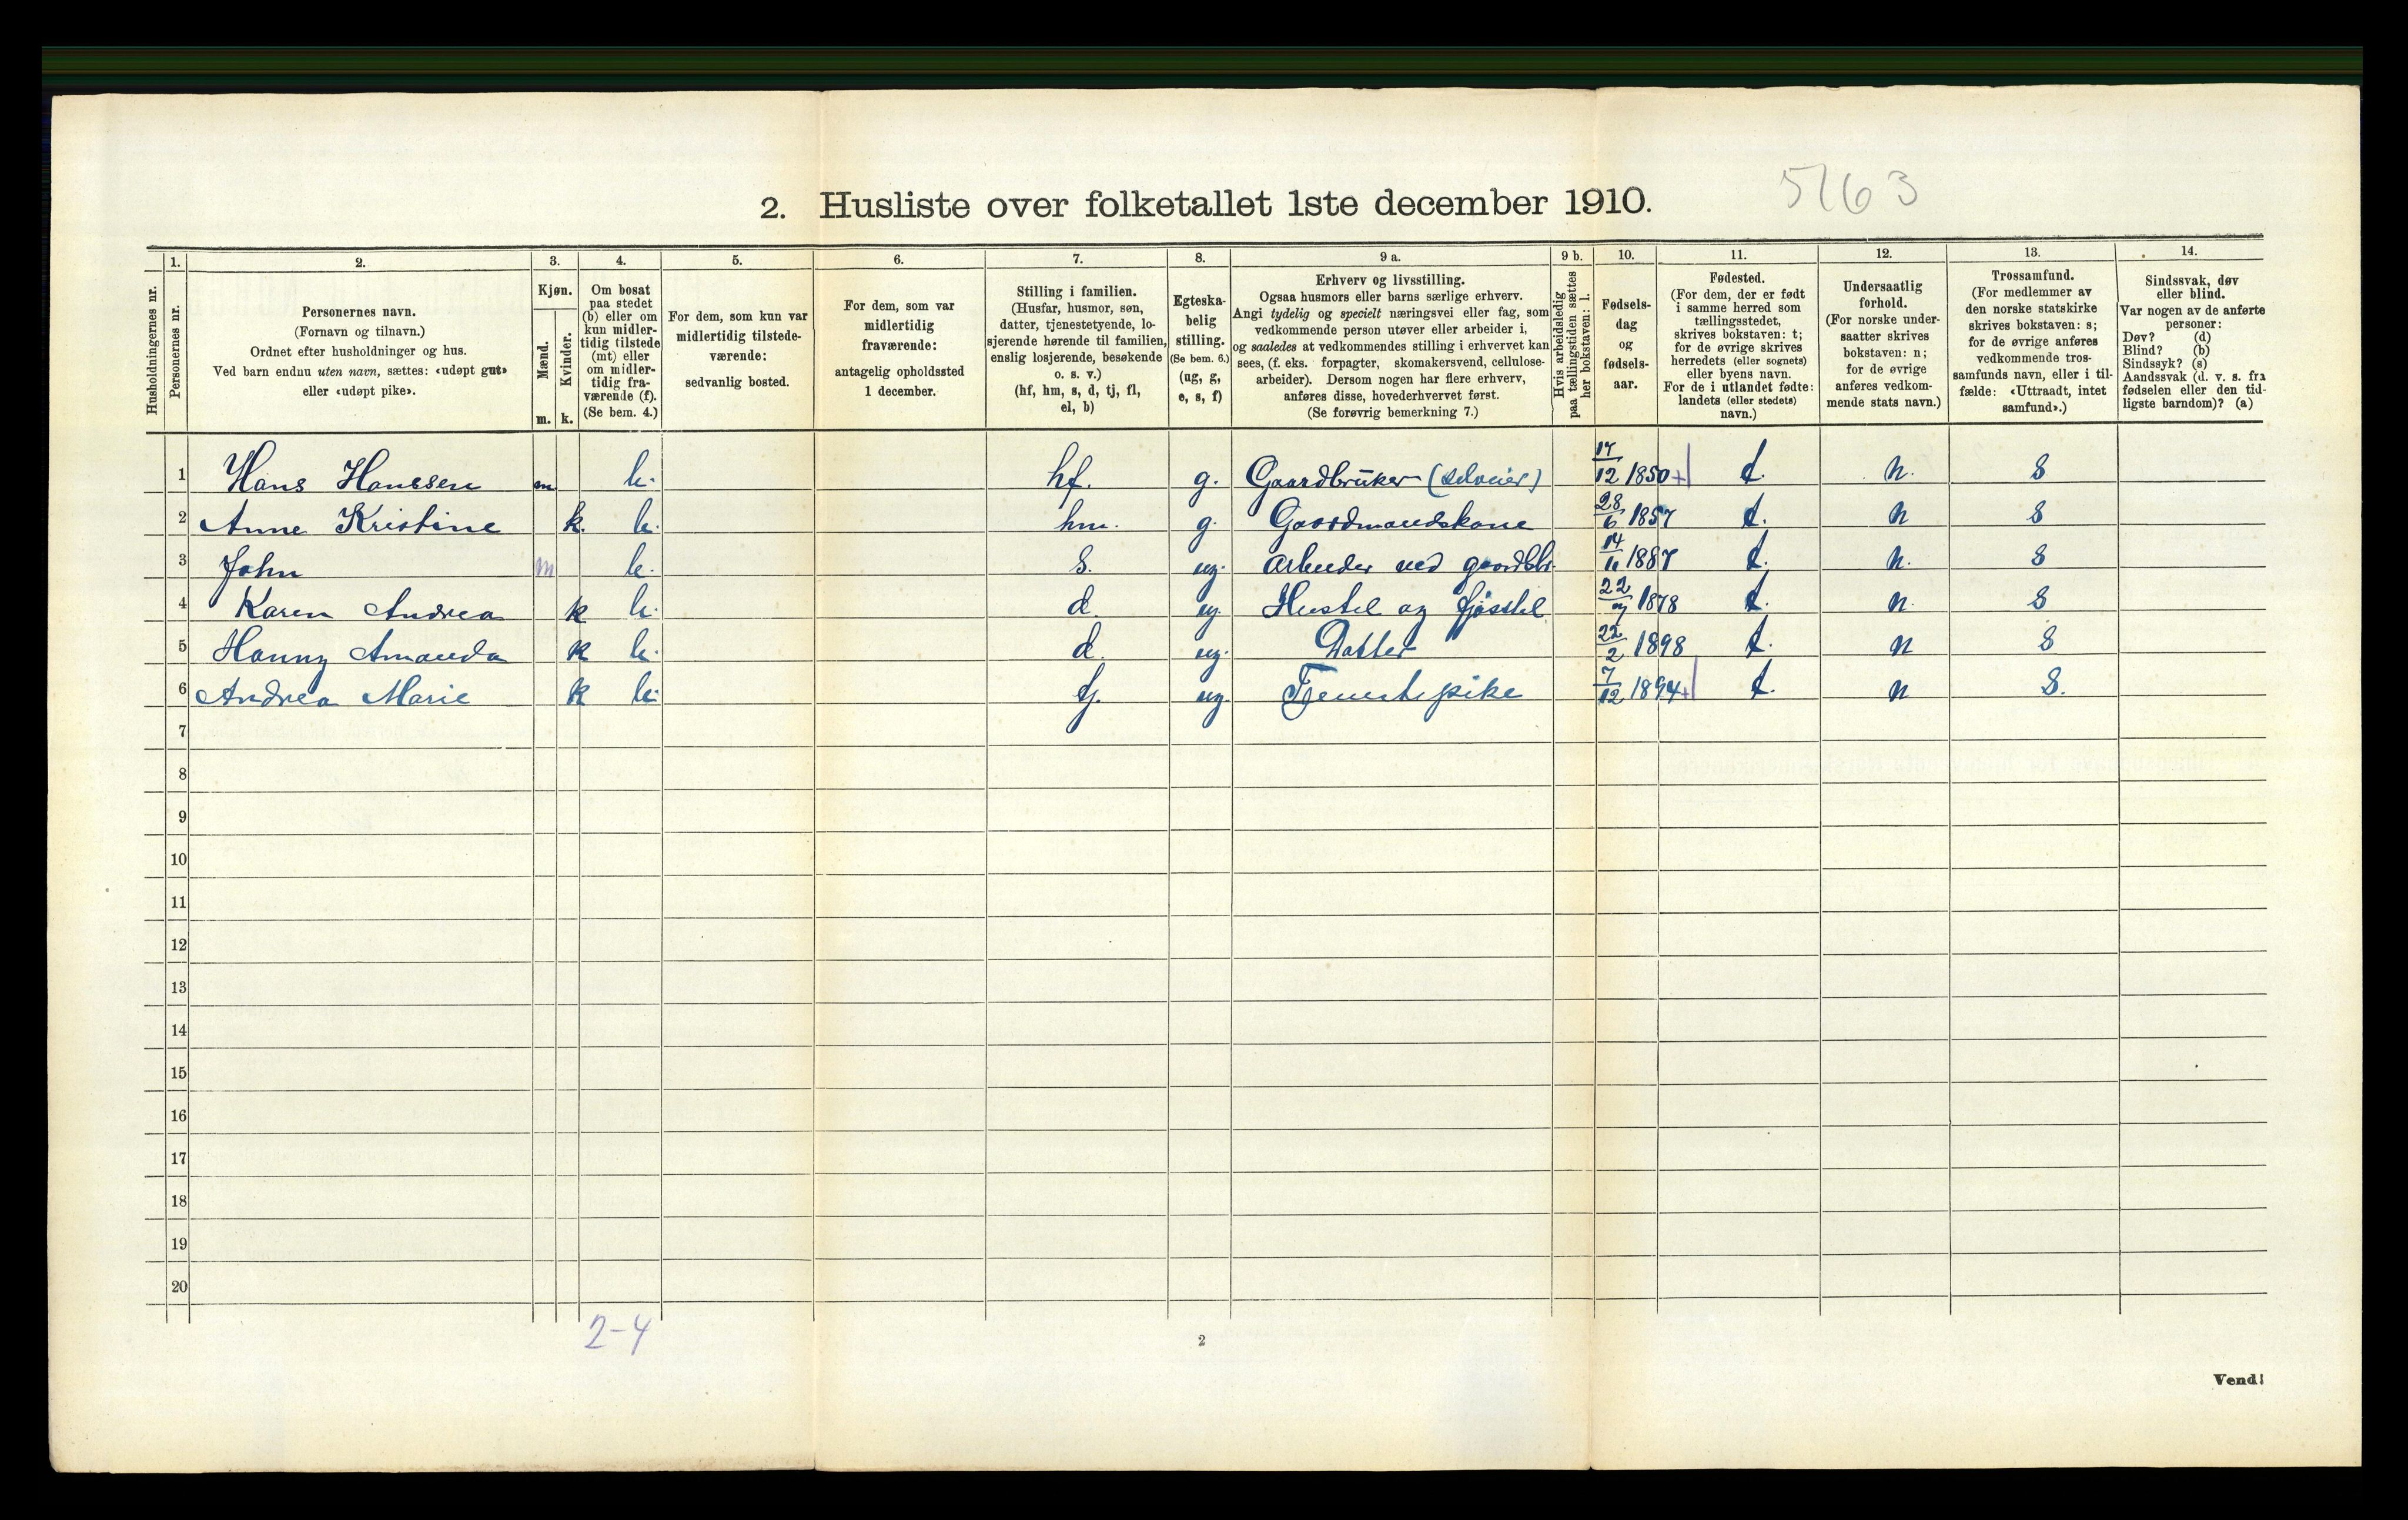 5163
2. Husliste over folketallet 1ste december 1910.
Husholdningernes nr.
1.
Personernes nr.
2.
Personernes navn.
(Fornavn og tilnavn.)
Ordnet efter husholdninger og hus.
Ved barn endnu uten navn, sættes: «udøpt gut»
eller «udøpt pike».
3.
Kjøn.
Mænd.
Kvinder.
m. k.
4.
Om bosat
paa stedet
(b) eller om
kun midler-
tidig tilstede
(mt) eller
om midler-
tidig fra-
værende (f).
(Se bem. 4.)
5.
For dem, som kun var
midlertidig tilstede-
værende:
sedvanlig bosted.
6.
For dem, som var
midlertidig
fraværende:
antagelig opholdssted
1 december.
7.
Stilling i familien.
(Husfar, husmor, søn,
datter, tjenestetyende, lo-
sjerende hørende til familien,
enslig losjerende, besøkende
o. s. v.)
(hf, hm, s, d, tj, fl,
el, b)
8.
Egteska-
belig
stilling.
(Se bem. 6.)
(ug, g,
e, s, f)
9 a.
Erhverv og livsstilling.
Ogsaa husmors eller barns særlige erhverv.
Angi tydelig og specielt næringsvei eller fag, som
vedkommende person utøver eller arbeider i,
og saaledes at vedkommendes stilling i erhvervet kan
sees, (f. eks. forpagter, skomakersvend, cellulose-
arbeider). Dersom nogen har flere erhverv,
anføres disse, hovederhvervet først.
(Se forøvrig bemerkning 7.)
9 b.
Hvis arbeidsledig
paa tællingstiden sættes
her bokstaven: l.
10.
Fødsels-
dag
og
fødsels-
aar.
11.
Fødested.
(For dem, der er født
i samme herred som
tællingsstedet,
skrives bokstaven: t;
for de øvrige skrives
herredets (eller sognets)
eller byens navn.
For de i utlandet fødte:
landets (eller stedets)
navn.)
12.
Undersaatlig
forhold.
(For norske under-
saatter skrives
bokstaven: n;
for de øvrige
anføres vedkom-
mende stats navn.)
13.
Trossamfund.
(For medlemmer av
den norske statskirke
skrives bokstaven: s;
for de øvrige anføres
vedkommende tros-
samfunds navn, eller i til-
fælde: «Uttraadt, intet
samfund».)
14.
Sindssvak, døv
eller blind.
Var nogen av de anførte
personer:
Døv? (d)
Blind? (b)
Sindssyk? (s)
Aandssvak (d. v. s. fra
fødselen eller den tid-
ligste barndom)? (a)
1 Hans Hanssen m b. hf. g. Gaardbruker (selveier) 17/12 1850 + t. n. S
2 Anne Kristine k. b. hm. g. Gaardmandskone 28/6 1857 t. n S
3 John m b. S. ug. Arbeider ved gaardbr. 1887 t. n. S
4 Karen Andrea k b. d. ug. Hustel og fjøsstel 1878 t. n. S
5 Hanny Amanda k b. d. ug. Datter 22/2 1898 t. n S
6 Andrea Marie k b. tj. ug. Tjenestepike 7/12 1894 + t. n S.
7
8
9
10
11
12
13
14
15
16
17
18
19
20
2-4
2
Vend!